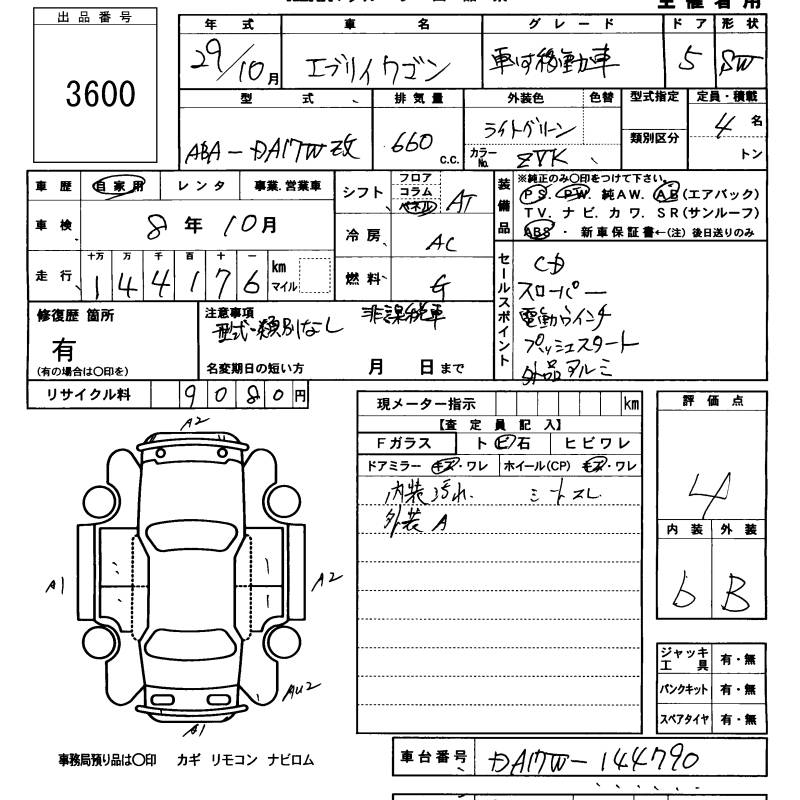 主催者用
出品番号
3600
年式 車名 グレード ドア 形状
29/10月 エブリイワゴン 車いす移動車 5 SW
型式 排気量 外装色 色替 型式指定 定員・積載
ABA-DA17W改 660 c.c. ライトグリーン カラーNo. ZVK 類別区分 4名
トン
車歴 自家用 レンタ 事業.営業車
車検 8年10月
走行 十万 万 千 百 十 一
144176 km マイル
シフト フロア コラム パネル AT
冷房 AC
燃料 G
装備品 ※純正のみ○印をつけて下さい。
PS. PW. 純AW. AB(エアバック)
TV. ナビ. カワ. SR(サンルーフ)
ABS ・ 新車保証書←(注) 後日送りのみ
セールスポイント
CD
スローパー
電動ウインチ
プッシュスタート
外品アルミ
修復歴 箇所
有
(有の場合は○印を)
注意事項 非課税車
型式・類別なし
名変期日の短い方 月 日まで
リサイクル料 9080円
現メーター指示 km
【査定員記入】
Fガラス トビ石 ヒビワレ
ドアミラー キズ・ワレ ホイール(CP) キズ・ワレ
内装汚れ. シートスレ
外装 A
評価点
4
内装 外装
b B
ジャッキ工具 有・無
パンクキット 有・無
スペアタイヤ 有・無
A2
A1
A2
AU2
A1
事務局預り品は○印 カギ リモコン ナビロム
車台番号 DA17W-144790